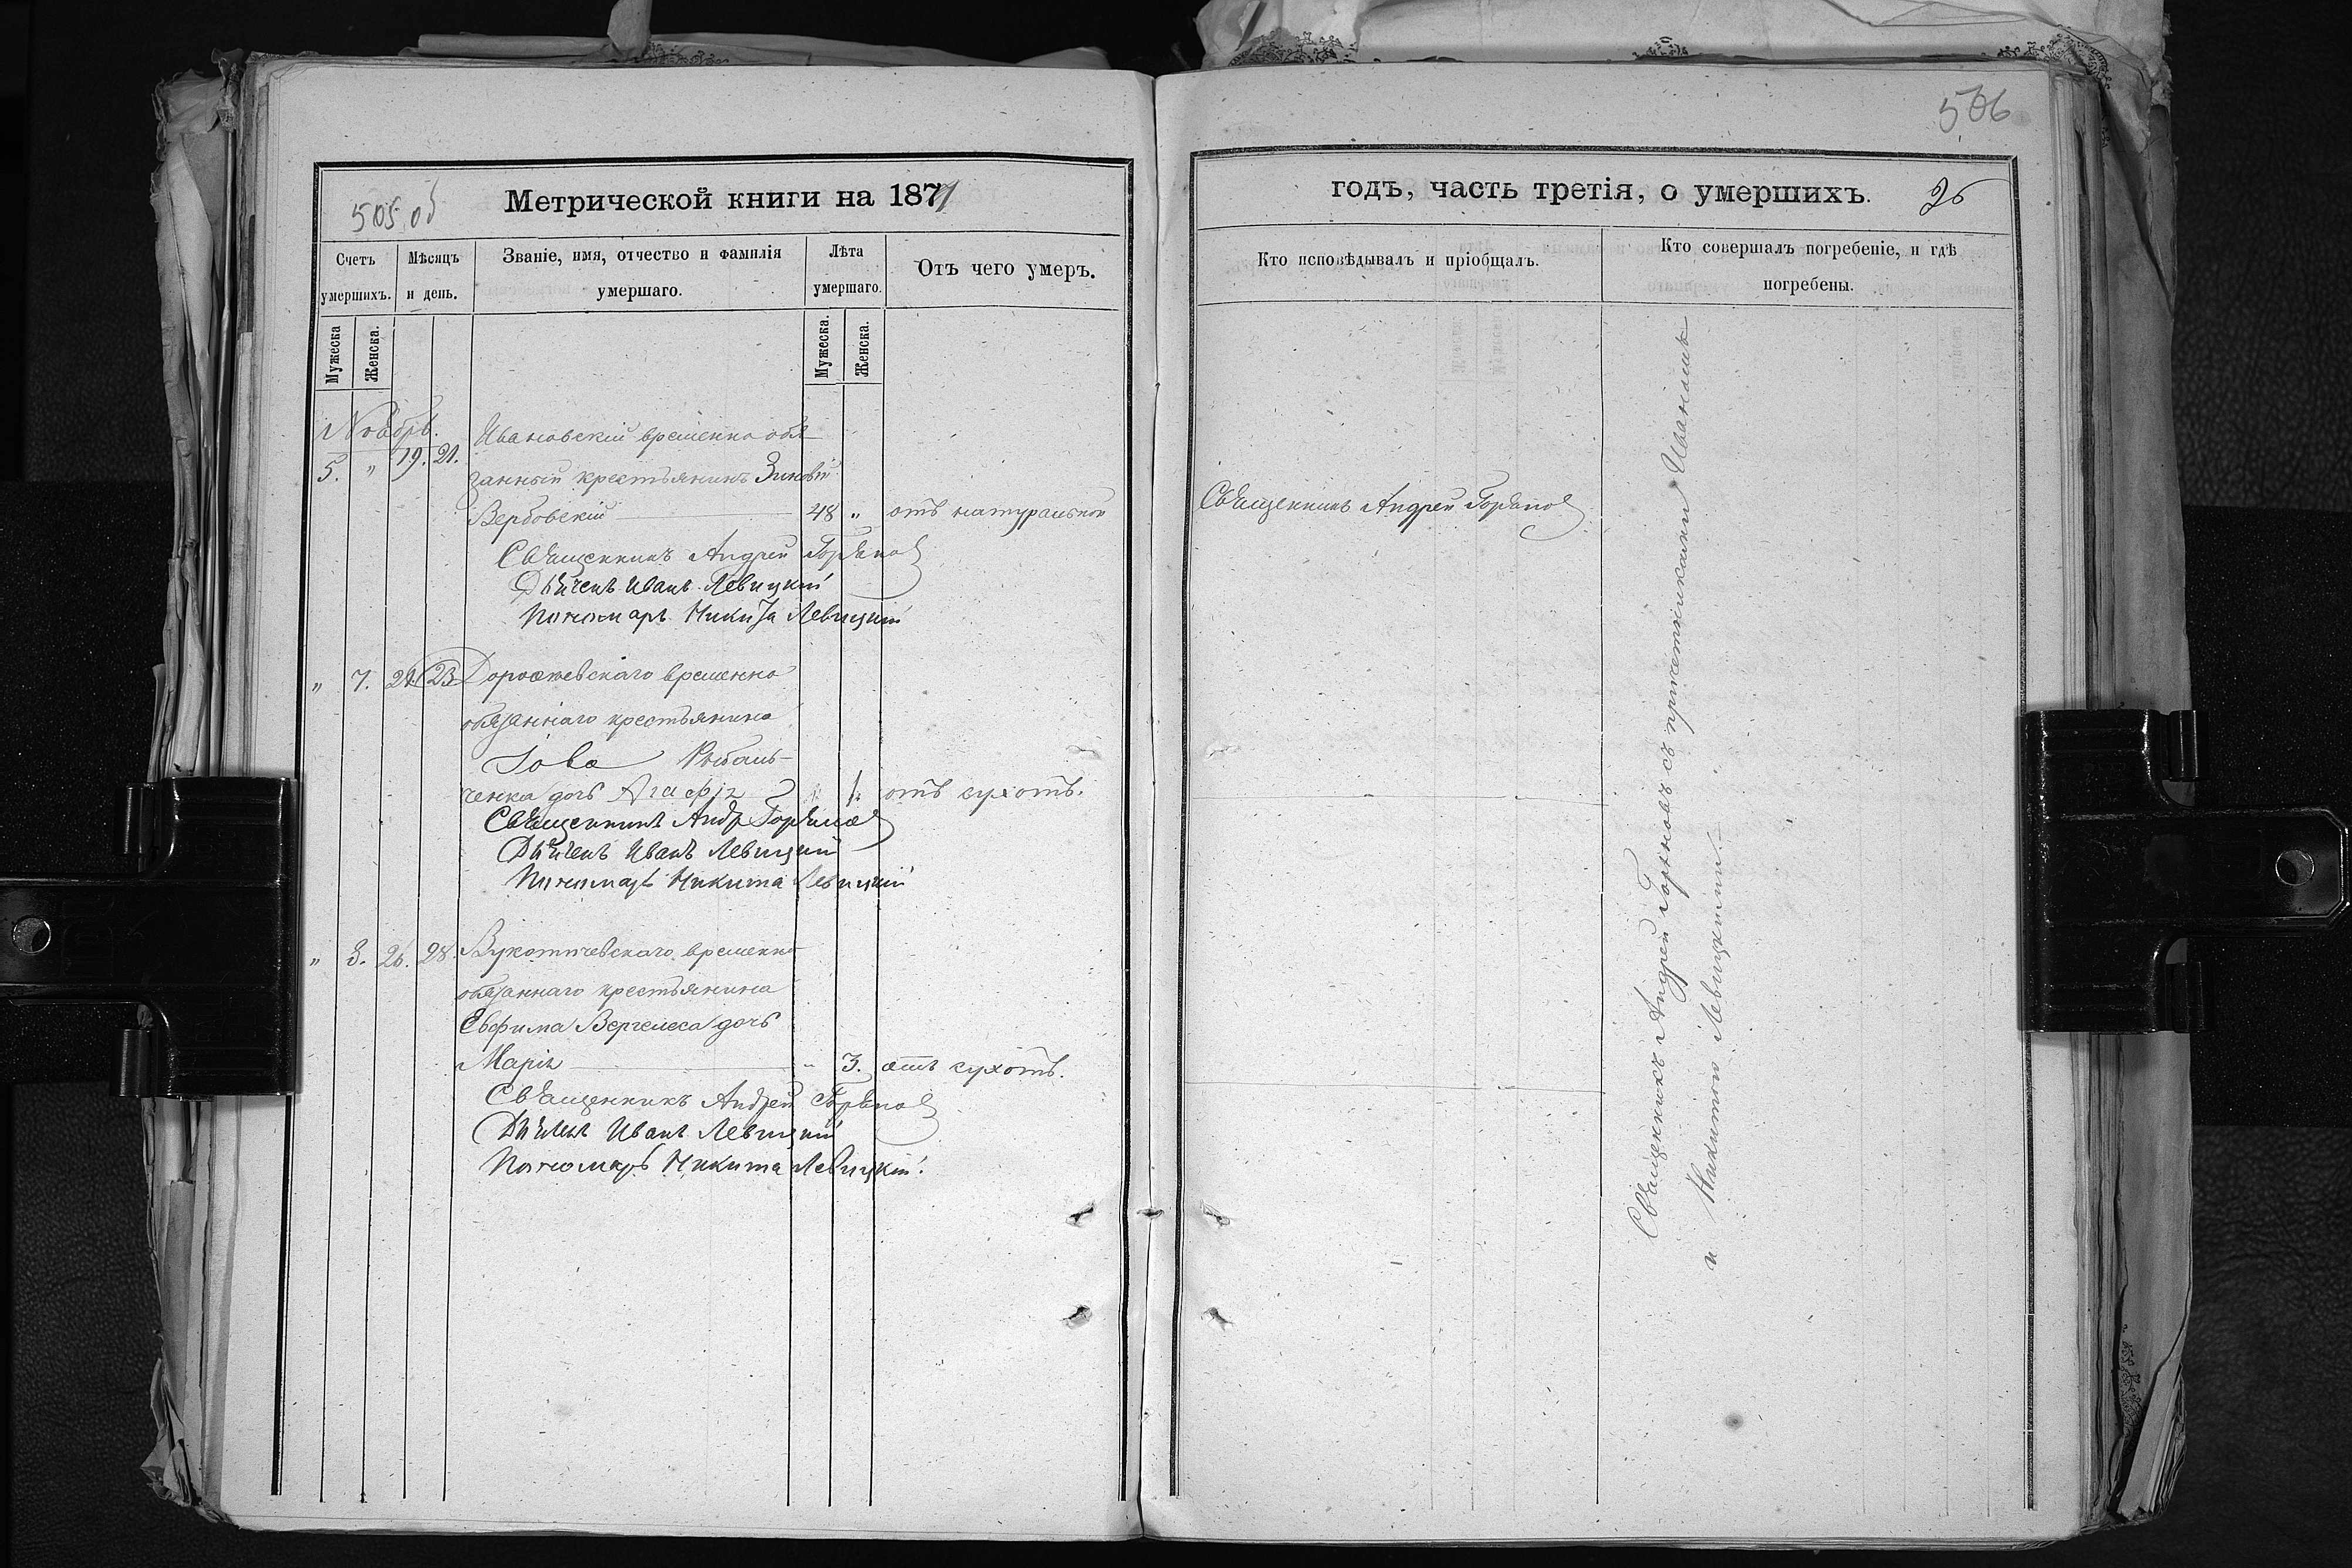 505 об
Метрической книги на 1871
Счетъ умершихъ.
Мѣсяцъ и день.
Званіе, имя, отчество и фамилія умершаго.
Лѣта умершаго.
Отъ чего умеръ.
Мужеска
Женска.
Мужеска.
Женска.
Ноябрь.
5. " 19. 21. Ивановскій временно обя-
занный крестьянинъ Зиновій
Вербовскій 48 " отъ натуральной
Священникъ Андрей Горяинов
Дьячекъ Иванъ Левицкій
Пономарь Никита Левицкій
" 7. 21. 23 Дорожевскаго временно
обязаннаго крестьянина
Іова Рыбаль-
ченка дочь Агафія 1. отъ сухотъ.
Священникъ Андр Горяинов
Дьячекъ Иванъ Левицкій
Пономарь Никита Левицкій
" 3. 26. 28. Вукотичевскаго временно
обязаннаго крестьянина
Евфима Вергелеса дочь
Марія " 3. отъ сухотъ.
Священникъ Андрей Горяинов
Дьячекъ Иванъ Левицкій
Пономарь Никита Левицкій.
506
годъ, часть третія, о умершихъ. 26
Кто исповѣдывалъ и пріобщалъ.
Кто совершалъ погребеніе, и гдѣ
погребены.
Священникъ Андрей Горяинов
Священникъ Андрей Горяиновъ съ причетниками Иваномъ
и Никитою Левицкими.